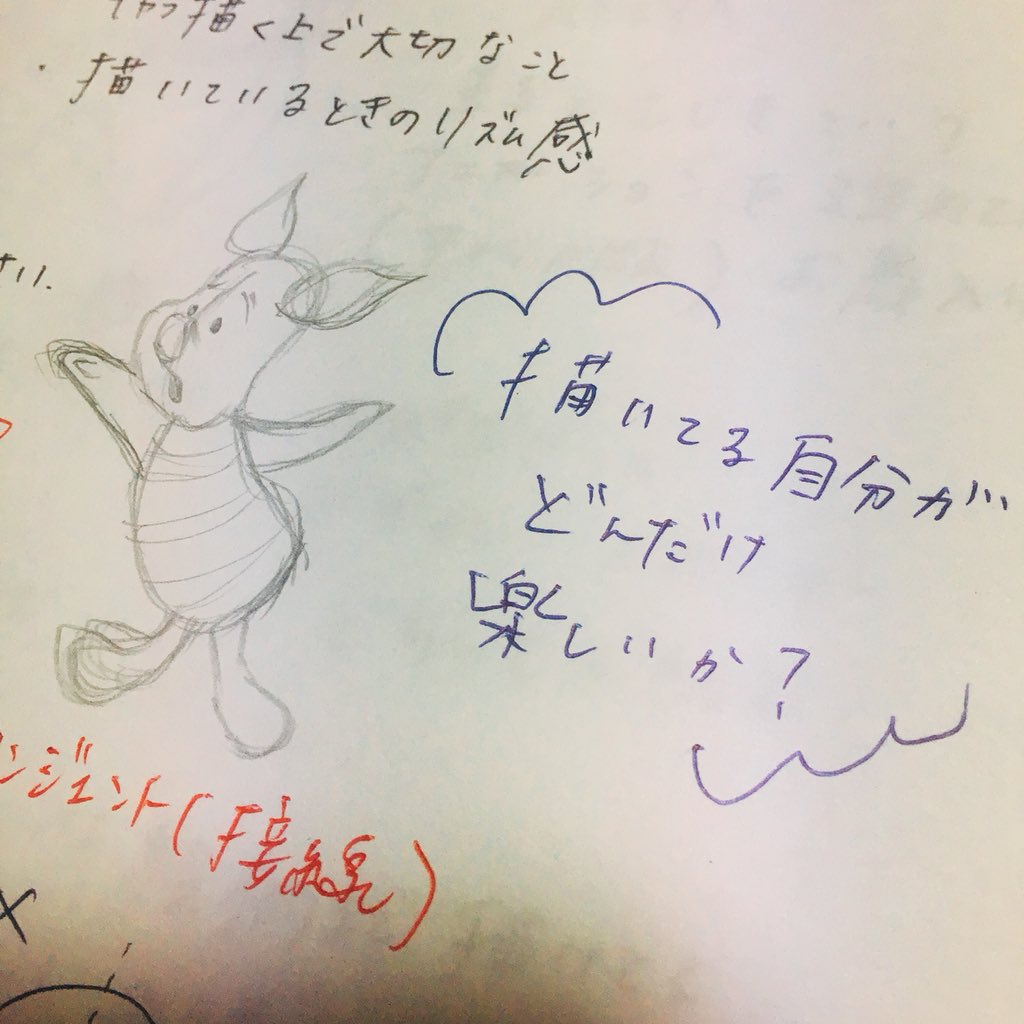 描く上で大切なこと
・描いているときのリズム感
さい.
描いてる自分が
どんだけ
楽しいか?
ンジェント(接線)